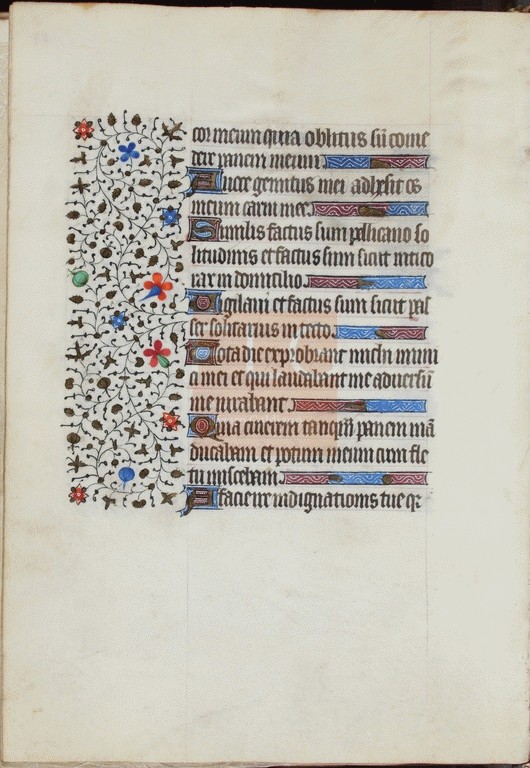 cor meum quia oblitus sū come
dere panem meum
A uoce gemitus mei adhesit os
meum carni mee
Similis factus sum pellicano so
litudinis et factus sum sicut nitico
rax in domicilio
Uigilaui et factus sum sicut pas
ser solitarius in tecto
Tota die exprobrant michi inimi
ci mei et qui laudabant me aduersū
me iurabant
Quia cinerem tanqm̄ panem mā
ducabam et potum meum cum fle
tu miscebam
A facie ire indignationis tue qr